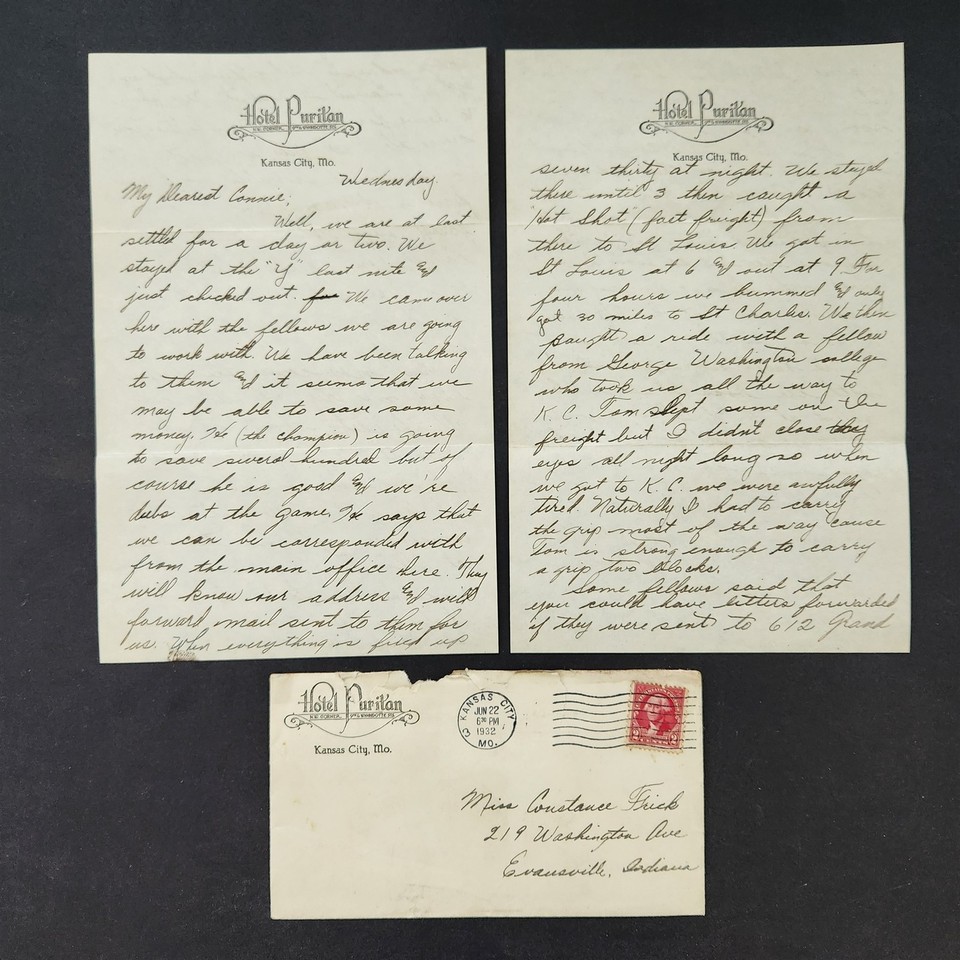 Hotel Puritan
N.W. CORNER, 9TH & WYANDOTTE STS.
Kansas City, Mo.
Wednesday
My Dearest Connie,
Well, we are at last
settled for a day or two. We
stayed at the "Y" last nite and
just checked out. We came over
here with the fellows we are going
to work with. We have been talking
to them and it seems that we
may be able to save some
money. He (the champion) is going
to save several hundred but of
course he is good and we're
dubs at the game. He says that
we can be corresponded with
from the main office here. They
will know our address and will
forward mail sent to them for
us. When everything is fixed up
Hotel Puritan
N.W. CORNER, 9TH & WYANDOTTE STS.
Kansas City, Mo.
seven thirty at night. We stayed
there until 3 then caught a
"Hot Shot" (fast freight) from
there to St Louis. We got in
St Louis at 6 and out at 9. For
four hours we bummed and only
got 30 miles to St Charles. We then
caught a ride with a fellow
from George Washington college
who took us all the way to
K. C. Tom slept some on the
freight but I didn't close
eyes all night long so when
we got to K. C. we were awfully
tired. Naturally I had to carry
the grip most of the way 'cause
Tom is strong enough to carry
a grip two blocks.
Some fellows said that
you could have letters forwarded
if they were sent to 612 Grand
Hotel Puritan
N.W. CORNER, 9TH & WYANDOTTE STS.
Kansas City, Mo.
KANSAS CITY
JUN 22
6 PM
1932
MO.
3
2 2
Miss Constance Frick
219 Washington Ave
Evansville, Indiana